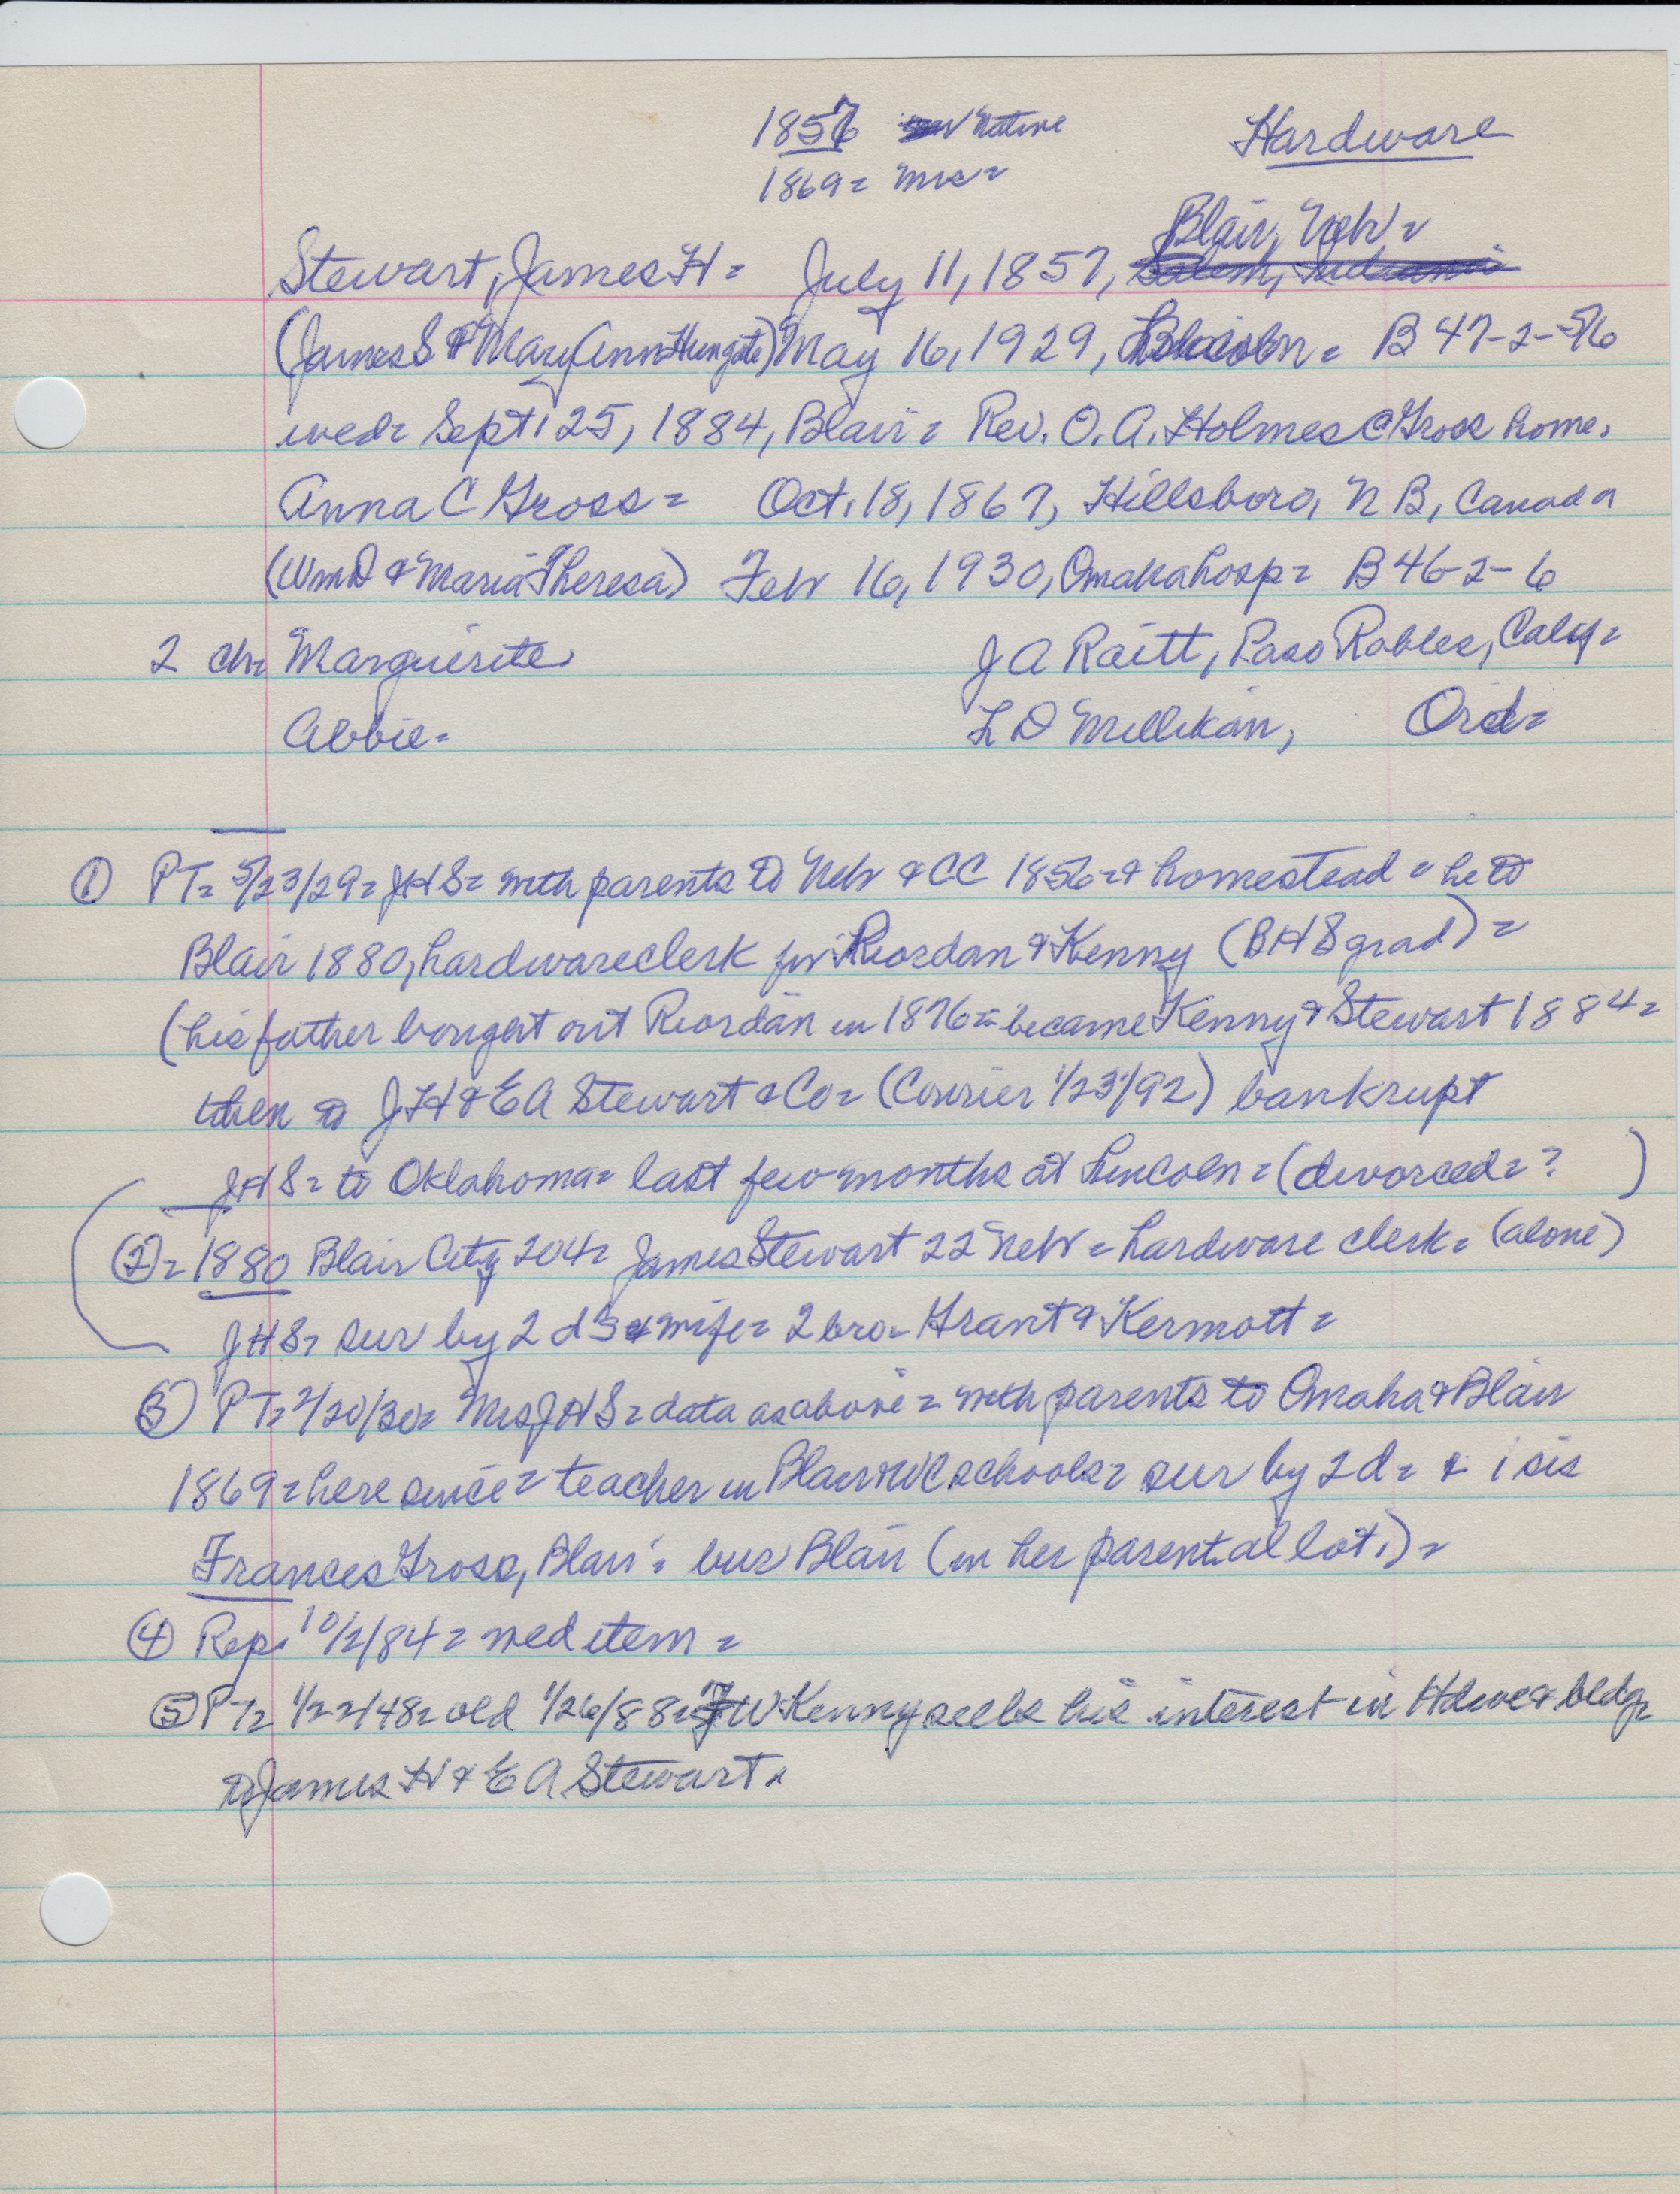 1857 native
Hardware
1869 = Mrs =
Blair, Neb =
Stewart, James H = July 11, 1857, Salem, Indiana
(James S & Mary Ann Hungate) May 16, 1929, = B 47-2-5/6
wed = Sept. 25, 1884, Blair = Rev. O. A. Holmes @ Gross home.
Anna C Gross = Oct. 18, 1867, Hillsboro, N B, Canada
(Wm D & Maria Theresa) Feb 16, 1930, Omaha hosp = B 46-2-6
2 ch = Marguerite J A Raitt, Paso Robles, Calif =
Abbie = L D Millikan, Ord =
① PT = 5/23/29 = J H S = with parents to Neb & CC 1856 = & homestead = he to
Blair 1880, hardware clerk for Riordan & Kenny (B H S grad) =
(his father bought out Riordan in 1876 = became Kenny & Stewart 1884 =
then to J H & E A Stewart & Co = (Courier 1/23/92) bankrupt
J H S = to Oklahoma = last few months at Lincoln = (divorced = ? )
② = 1880 Blair City 204 = James Stewart 22 Neb = hardware clerk = (alone)
J H S = sur by 2 ds & wife = 2 bro = Grant & Kermott =
③ PT = 2/20/30 = Mrs J H S = data as above = with parents to Omaha & Blair
1869 = here since = teacher in Blair & WC schools = sur by 2 d = & 1 sis
Frances Gross, Blair = bur Blair (in her parental lot.) =
④ Rep. 10/2/84 = wed item =
⑤ PT = 1/22/48 = old 1/26/88 = J W Kenny sells his interest in Hdwe & bldg =
to James H & E A Stewart =